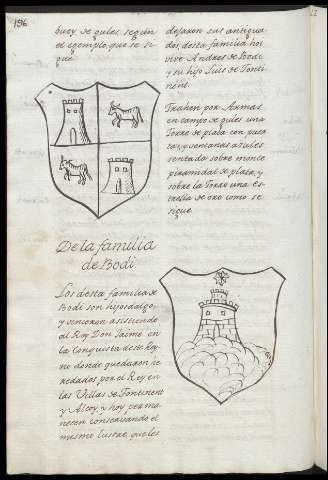 196
buey de gules, segun
el egemplo, que se si
gue.
De la familia
de Bodi
Los desta familia de
Bodi son hijosdalgo,
y vinieron asistiendo
al Rey Don Jaime en
la Conquista deste Rey
no donde quedaron he
redados por el Rey en
las Villas de Fontinent
y Alcoy y hoy perma
necen conservando el
mesmo lustre que les
dejaron sus antigua
dos, desta familia hoi
vive Andres de Bodi
y su hijo Luis de Fonti
nent.
Trahen por Armas
en campo de gules una
Torre de plata con puer
tas, y ventanas azules
sentada sobre monte
piramidal de plata, y
sobre la Torre una es
trella de oro como se
sigue.